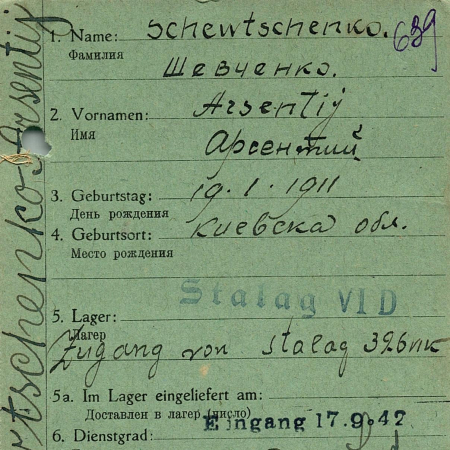 1. Name: Schewtschenko.
639
Фамилия
Шевченко.
2. Vornamen: Arsentij
Имя
Арсентий
3. Geburtstag: 19.1.1911
День рождения
4. Geburtsort: Киевска обл.
Место рождения
Stalag VI D
5. Lager:
Лагерь
Zugang von Stalag 326
5a. Im Lager eingeliefert am:
Доставлен в лагерь (число)
Eingang 17.9.42
6. Dienstgrad: